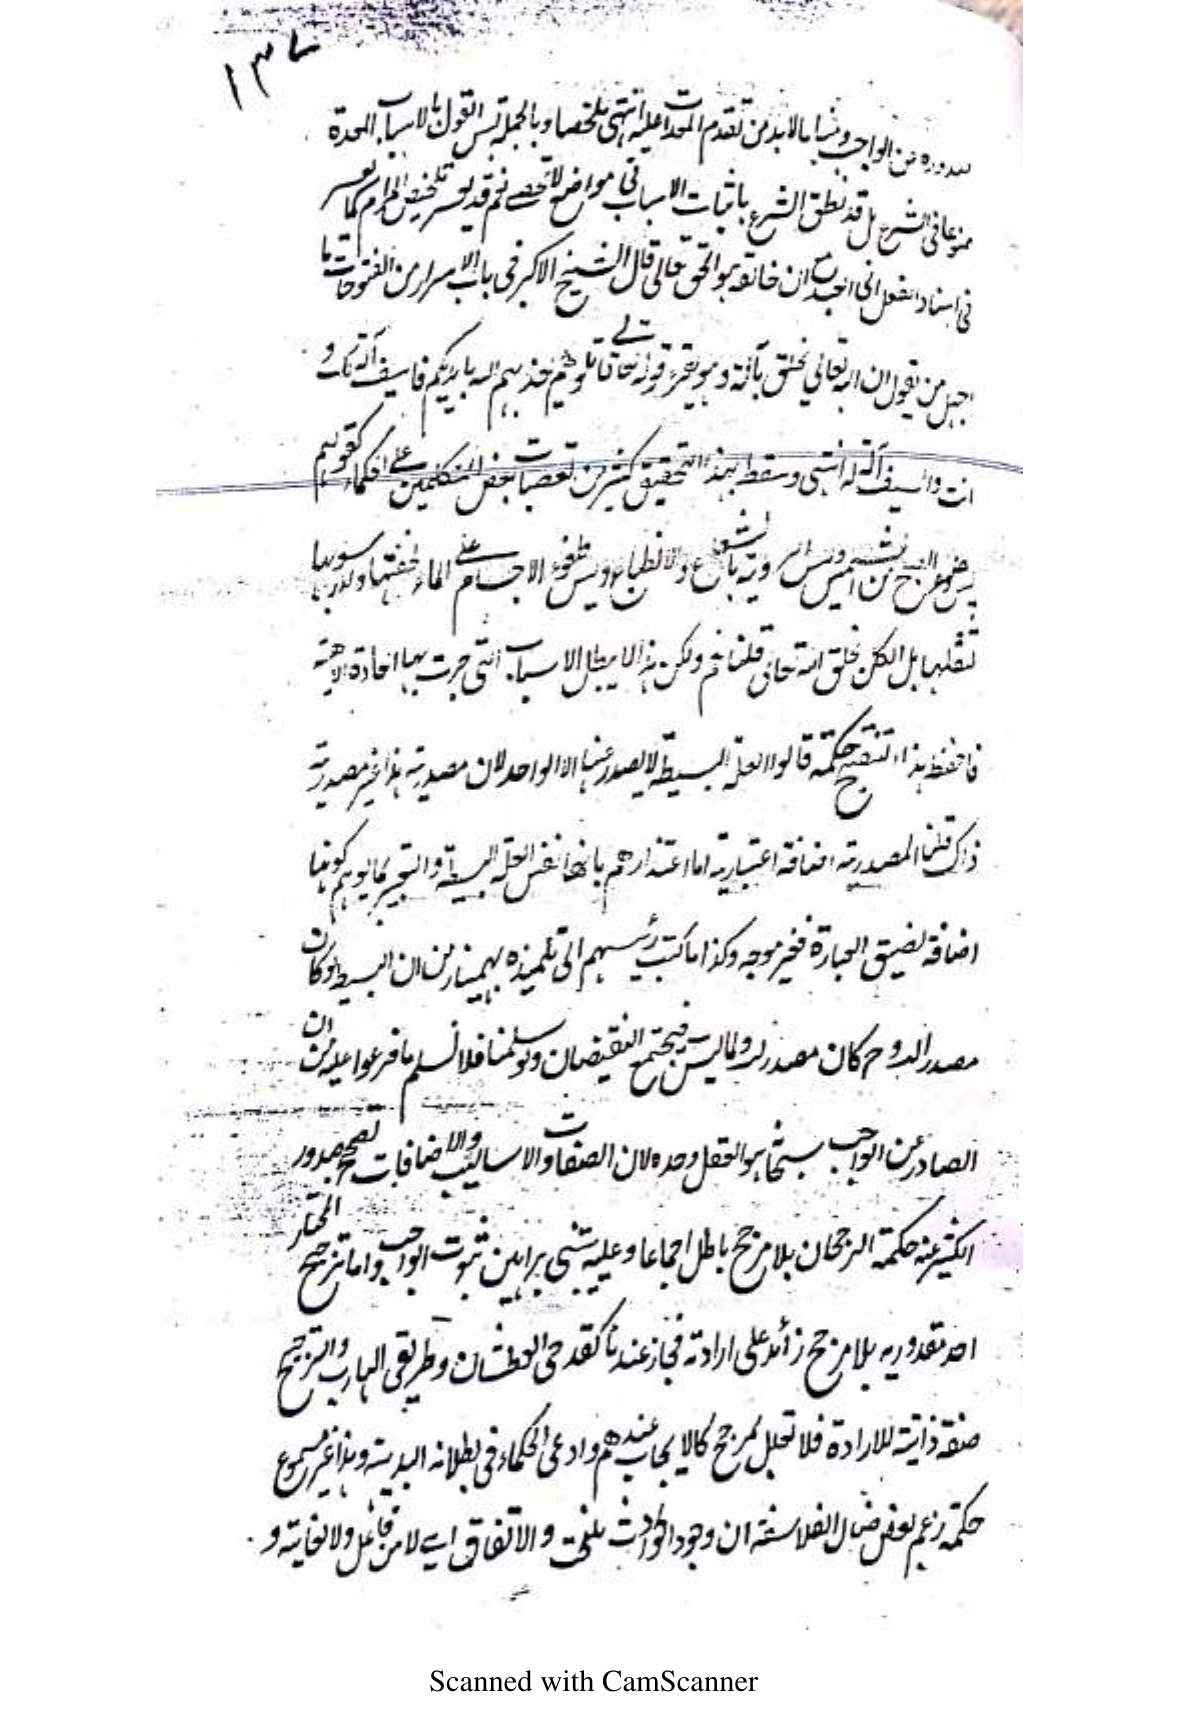 ١٣٧
صدوره من الواجب و منها ما لابد من تقدم المعدات عليه انتهى ملخصا و بالجملة ليس القول بالاسباب المعدة
ممنوعا في الشرع بل قد نطق الشرع باثبات الاسباب في مواضع لا تحصى نعم قد يعسر تلخيص المرام كما يعسر
في اسناد الفعل الى العبد مع ان خالقه هو الحق تعالى قال الشيخ الاكبر في باب الاسرار من الفتوحات ما
اجهل من يقول ان الله تعالى يخلق بآلة و هو يقرء قوله تعالى قاتلوهم يعذبهم الله بايديكم فالسيف آلة لك و
انت و السيف آلة له انتهى و سقط بهذا التحقيق كثير من تعصبات بعض المتكلمين على الحكماء كقولهم
ليس ضوء من الشمس و ليس الروية بالشعاع و الانطباع و ليس طفوء الاجسام على الماء لخفتها و لا رسوبها
لثقلها بل الكل بخلق الله تعالى قلنا نعم و لكن هذا لا يبطل الاسباب التي جرت بها العادة الالهية
فاحفظ هذا التنقيح حكمة قالوا العلة البسيطة لا يصدر عنها الا الواحد لان مصدرية هذا غير مصدرية
ذاك قلنا المصدرية اضافة اعتبارية اما اعتذارهم بانها نفس العلة البسيطة و التعبير بما يوهم كونها
اضافة لضيق العبارة فغير موجه و كذا ما كتب رئيسهم الى تلميذه بهمنيار من ان البسيط لو كان
مصدرا لـ و ح كان مصدرا لـ و لما ليس فيجتمع النقيضان و لو سلمنا فلا نسلم ما فرعوا عليه من ان
الصادر عن الواجب سبحانه هو العقل وحده لان الصفات و الاساليب و الاضافات تصحح صدور
الكثير عنه حكمة الرجحان بلا مرجح باطل اجماعا و عليه يبتني براهين ثبوت الواجب و اما ترجيح المختار
احد مقدوريه بلا مرجح زائد على ارادته فجاز عندنا كقدحي العطشان و طريقي الهارب و الترجيح
صفة ذاتية للارادة فلا تعلل بمرجح كالايجاب عندهم و ادعى الحكماء في بطلانه البديهة و هذا غير مسموع
حكمة زعم بعض ضلال الفلاسفة ان وجود الحوادث بالبخت و الاتفاق اي لا من فاعل و لا لغاية و
Scanned with CamScanner